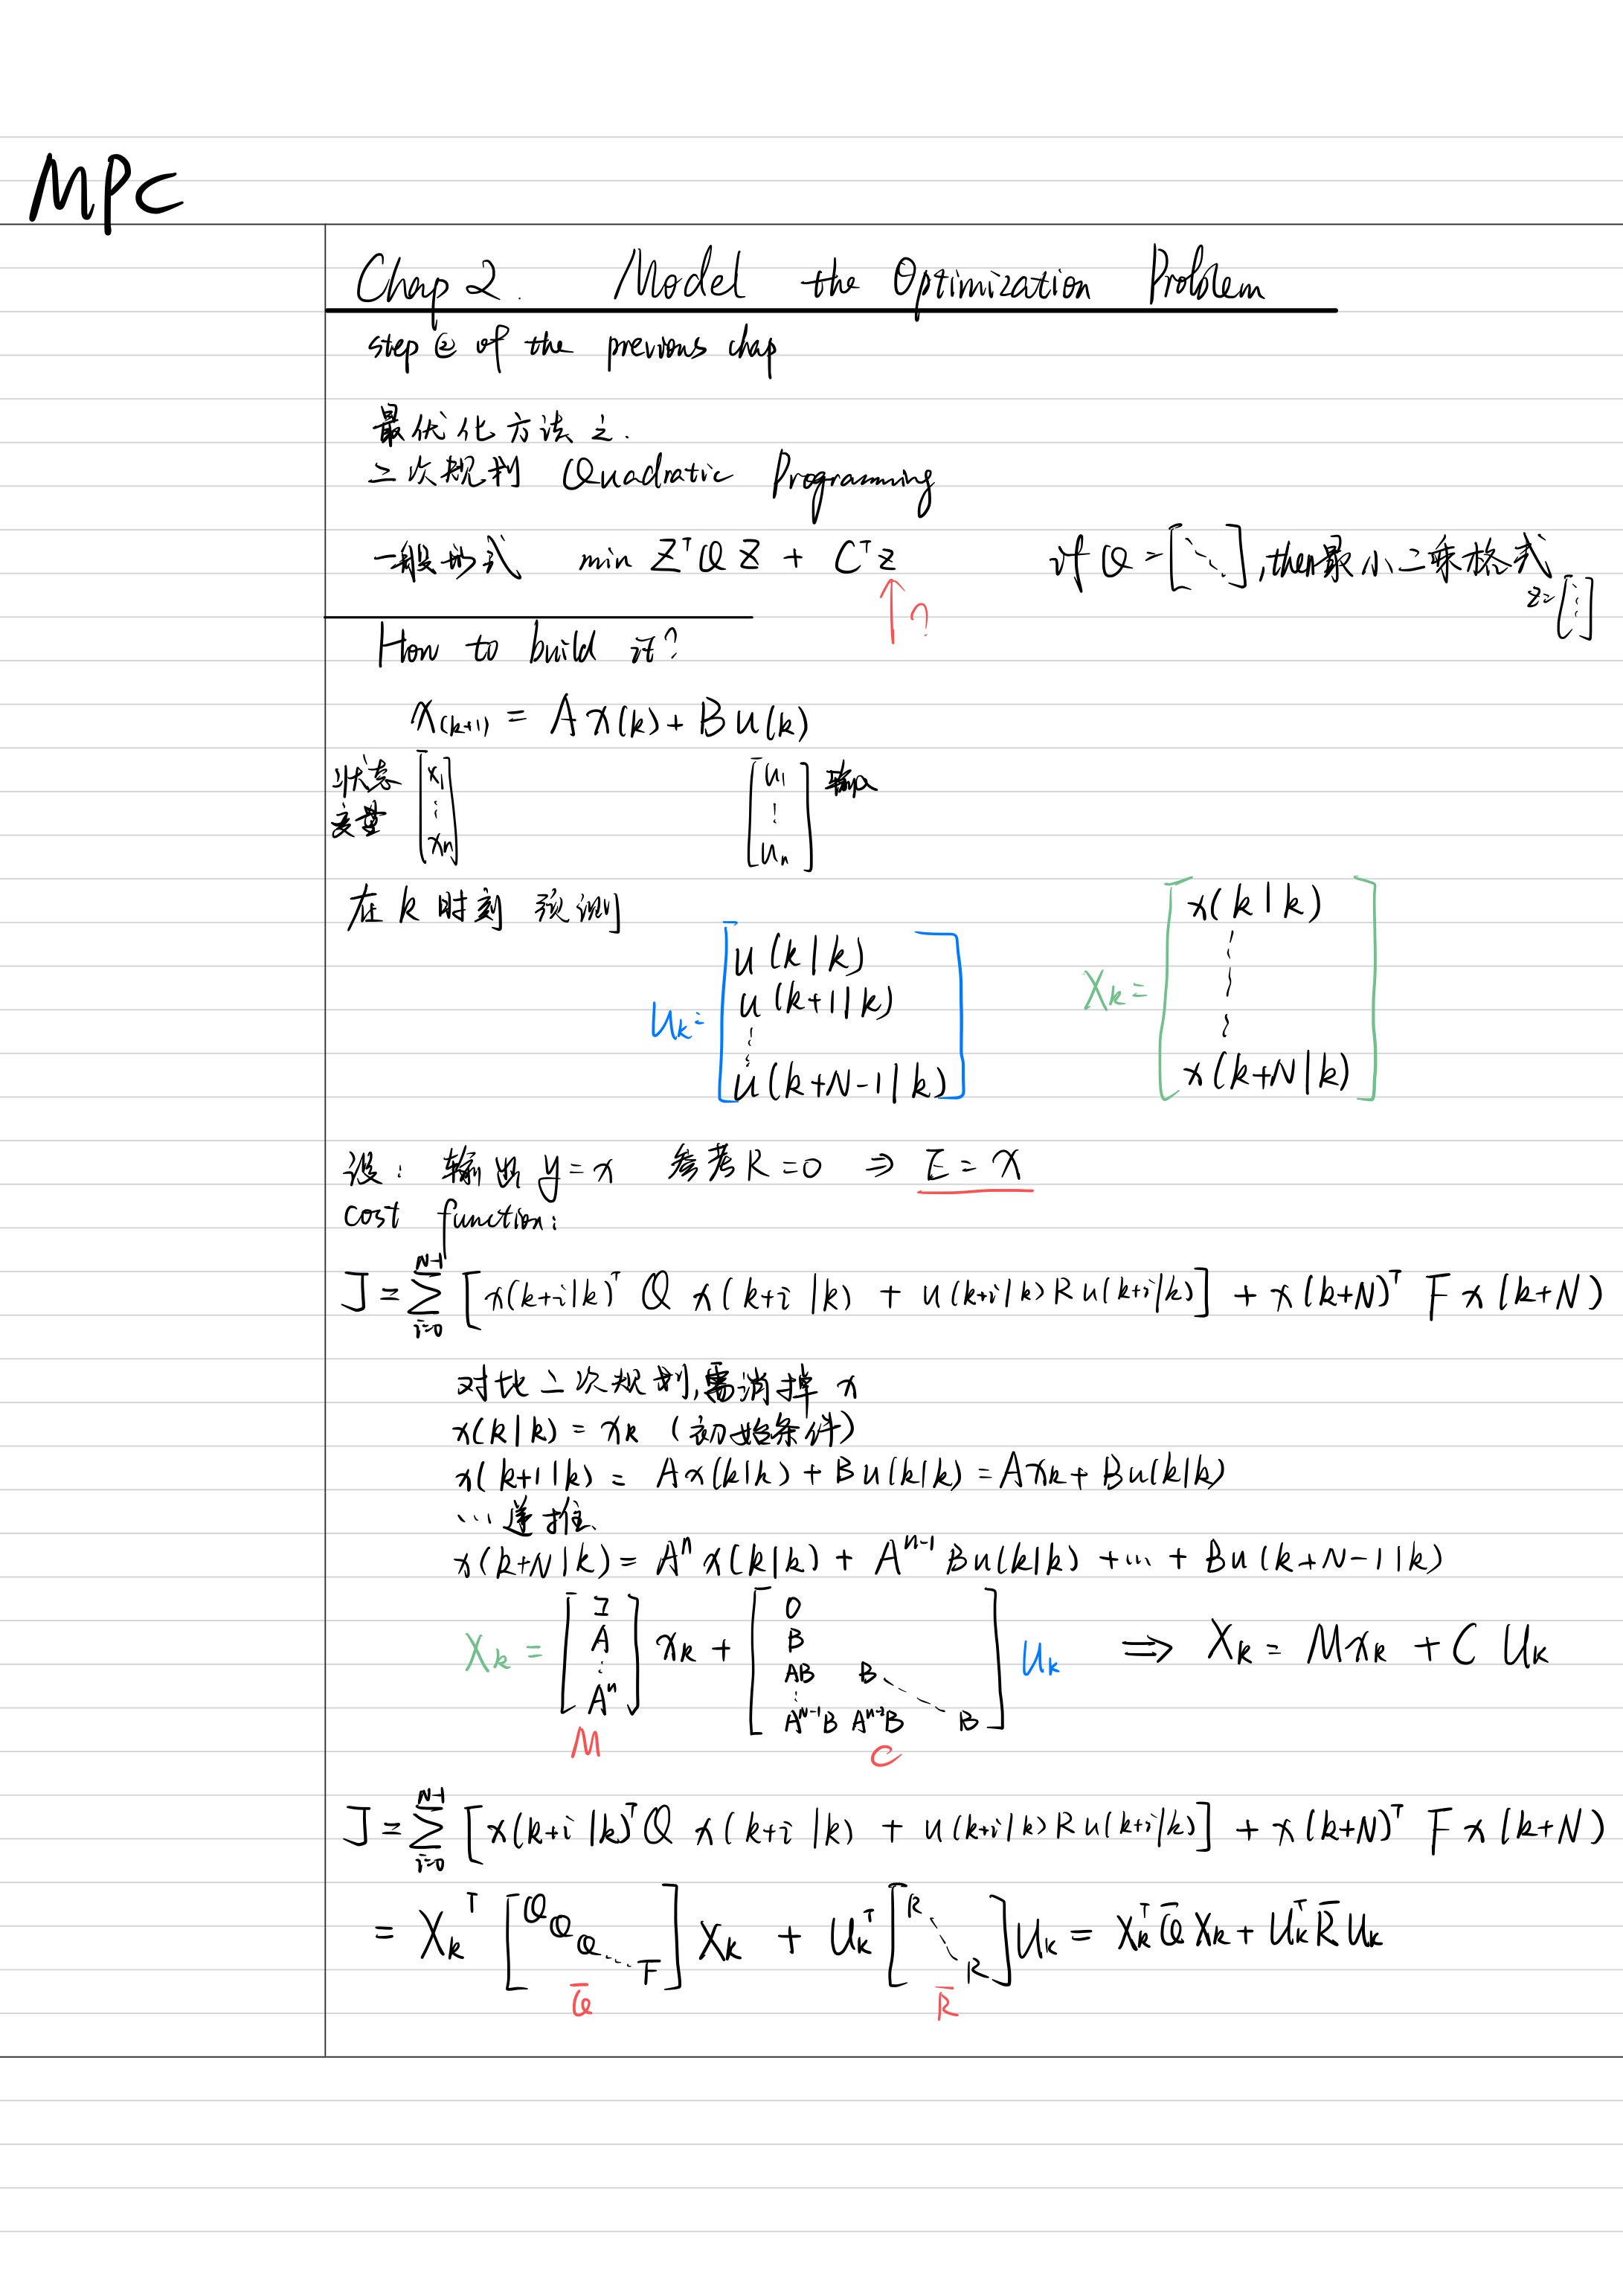 MPC
Chap 2. Model the Optimization Problem
step ② of the previous chap
最优化方法之.
二次规划 Quadratic Programming
一般形式 min Zᵀ Q Z + Cᵀ z if Q = [⋱], then 最小二乘格式
↑? z = [⋮]
How to build it?
x(k+1) = A x(k) + B u(k)
状态变量 [x₁ ⋮ xₙ] [u₁ ⋮ uₙ] 输入
在 k 时刻 预测
Uₖ = [u(k|k) u(k+1|k) ⋮ u(k+N-1|k)] Xₖ = [x(k|k) ⋮ x(k+N|k)]
设: 输出 y = x 参考 R = 0 ⇒ E = x
cost function:
J = Σᵢ₌₀ᴺ⁻¹ [x(k+i|k)ᵀ Q x(k+i|k) + u(k+i|k) R u(k+i|k)] + x(k+N)ᵀ F x(k+N)
对比二次规划,需消掉 x
x(k|k) = xₖ (初始条件)
x(k+1|k) = A x(k|k) + B u(k|k) = A xₖ + B u(k|k)
… 递推
x(k+N|k) = Aⁿ x(k|k) + Aⁿ⁻¹ B u(k|k) + … + B u(k+N-1|k)
Xₖ = [I A ⋮ Aⁿ] xₖ + [0 B AB B ⋱ ⋮ Aᴺ⁻¹B Aⁿ⁻²B B] Uₖ ⇒ Xₖ = M xₖ + C Uₖ
M C
J = Σᵢ₌₀ᴺ⁻¹ [x(k+i|k)ᵀ Q x(k+i|k) + u(k+i|k) R u(k+i|k)] + x(k+N)ᵀ F x(k+N)
= Xₖᵀ [Q Q Q ⋱ F] Xₖ + Uₖᵀ [R ⋱ R] Uₖ = Xₖᵀ Q̄ Xₖ + Uₖᵀ R̄ Uₖ
Q̄ R̄